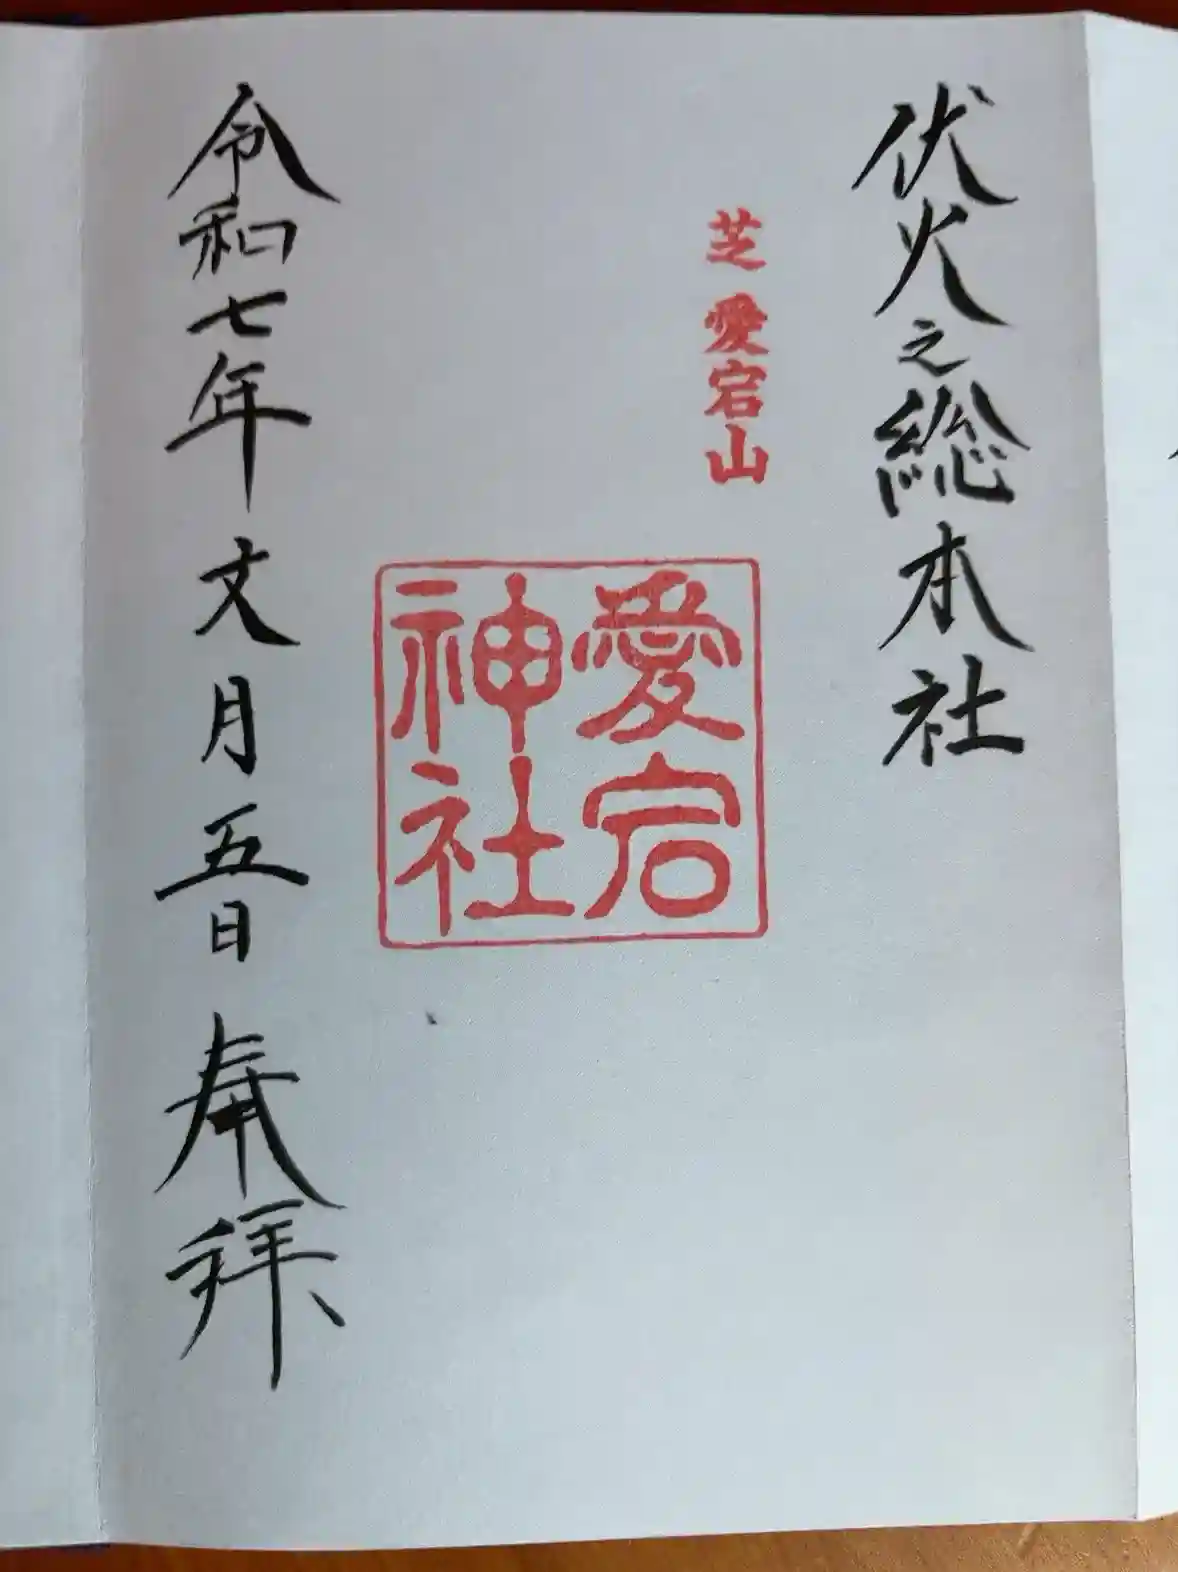 伏火之総本社
芝 愛宕山
愛宕
神社
令和七年 文月 五日 奉拝